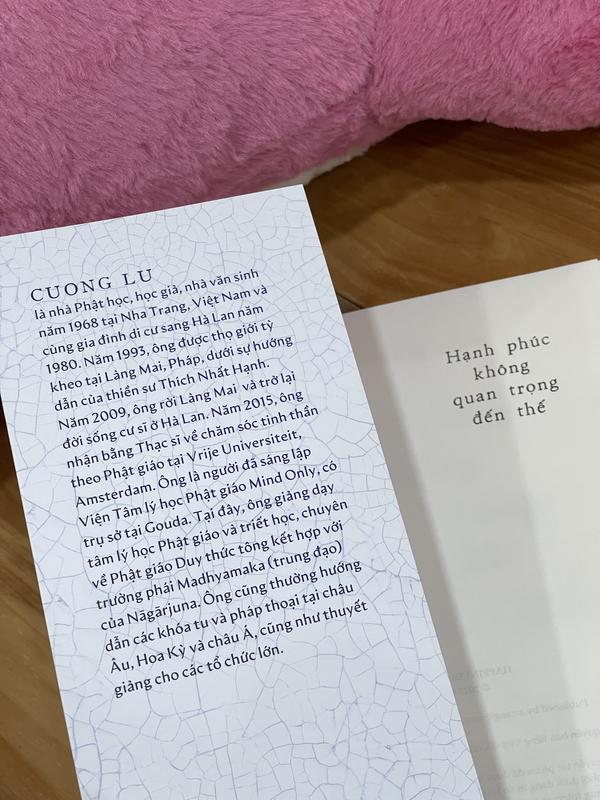 CUONG LU
là nhà Phật học, học giả, nhà văn sinh
năm 1968 tại Nha Trang, Việt Nam và
cùng gia đình di cư sang Hà Lan năm
1980. Năm 1993, ông được thọ giới tỳ
kheo tại Làng Mai, Pháp, dưới sự hướng
dẫn của thiền sư Thích Nhất Hạnh.
Năm 2009, ông rời Làng Mai và trở lại
đời sống cư sĩ ở Hà Lan. Năm 2015, ông
nhận bằng Thạc sĩ về chăm sóc tinh thần
theo Phật giáo tại Vrije Universiteit,
Amsterdam. Ông là người đã sáng lập
Viện Tâm lý học Phật giáo Mind Only, có
trụ sở tại Gouda. Tại đây, ông giảng dạy
tâm lý học Phật giáo và triết học, chuyên
về Phật giáo Duy thức tông kết hợp với
trường phái Madhyamaka (trung đạo)
của Nāgārjuna. Ông cũng thường hướng
dẫn các khóa tu và pháp thoại tại châu
Âu, Hoa Kỳ và châu Á, cũng như thuyết
giảng cho các tổ chức lớn.
Hạnh phúc
không
quan trọng
đến thế